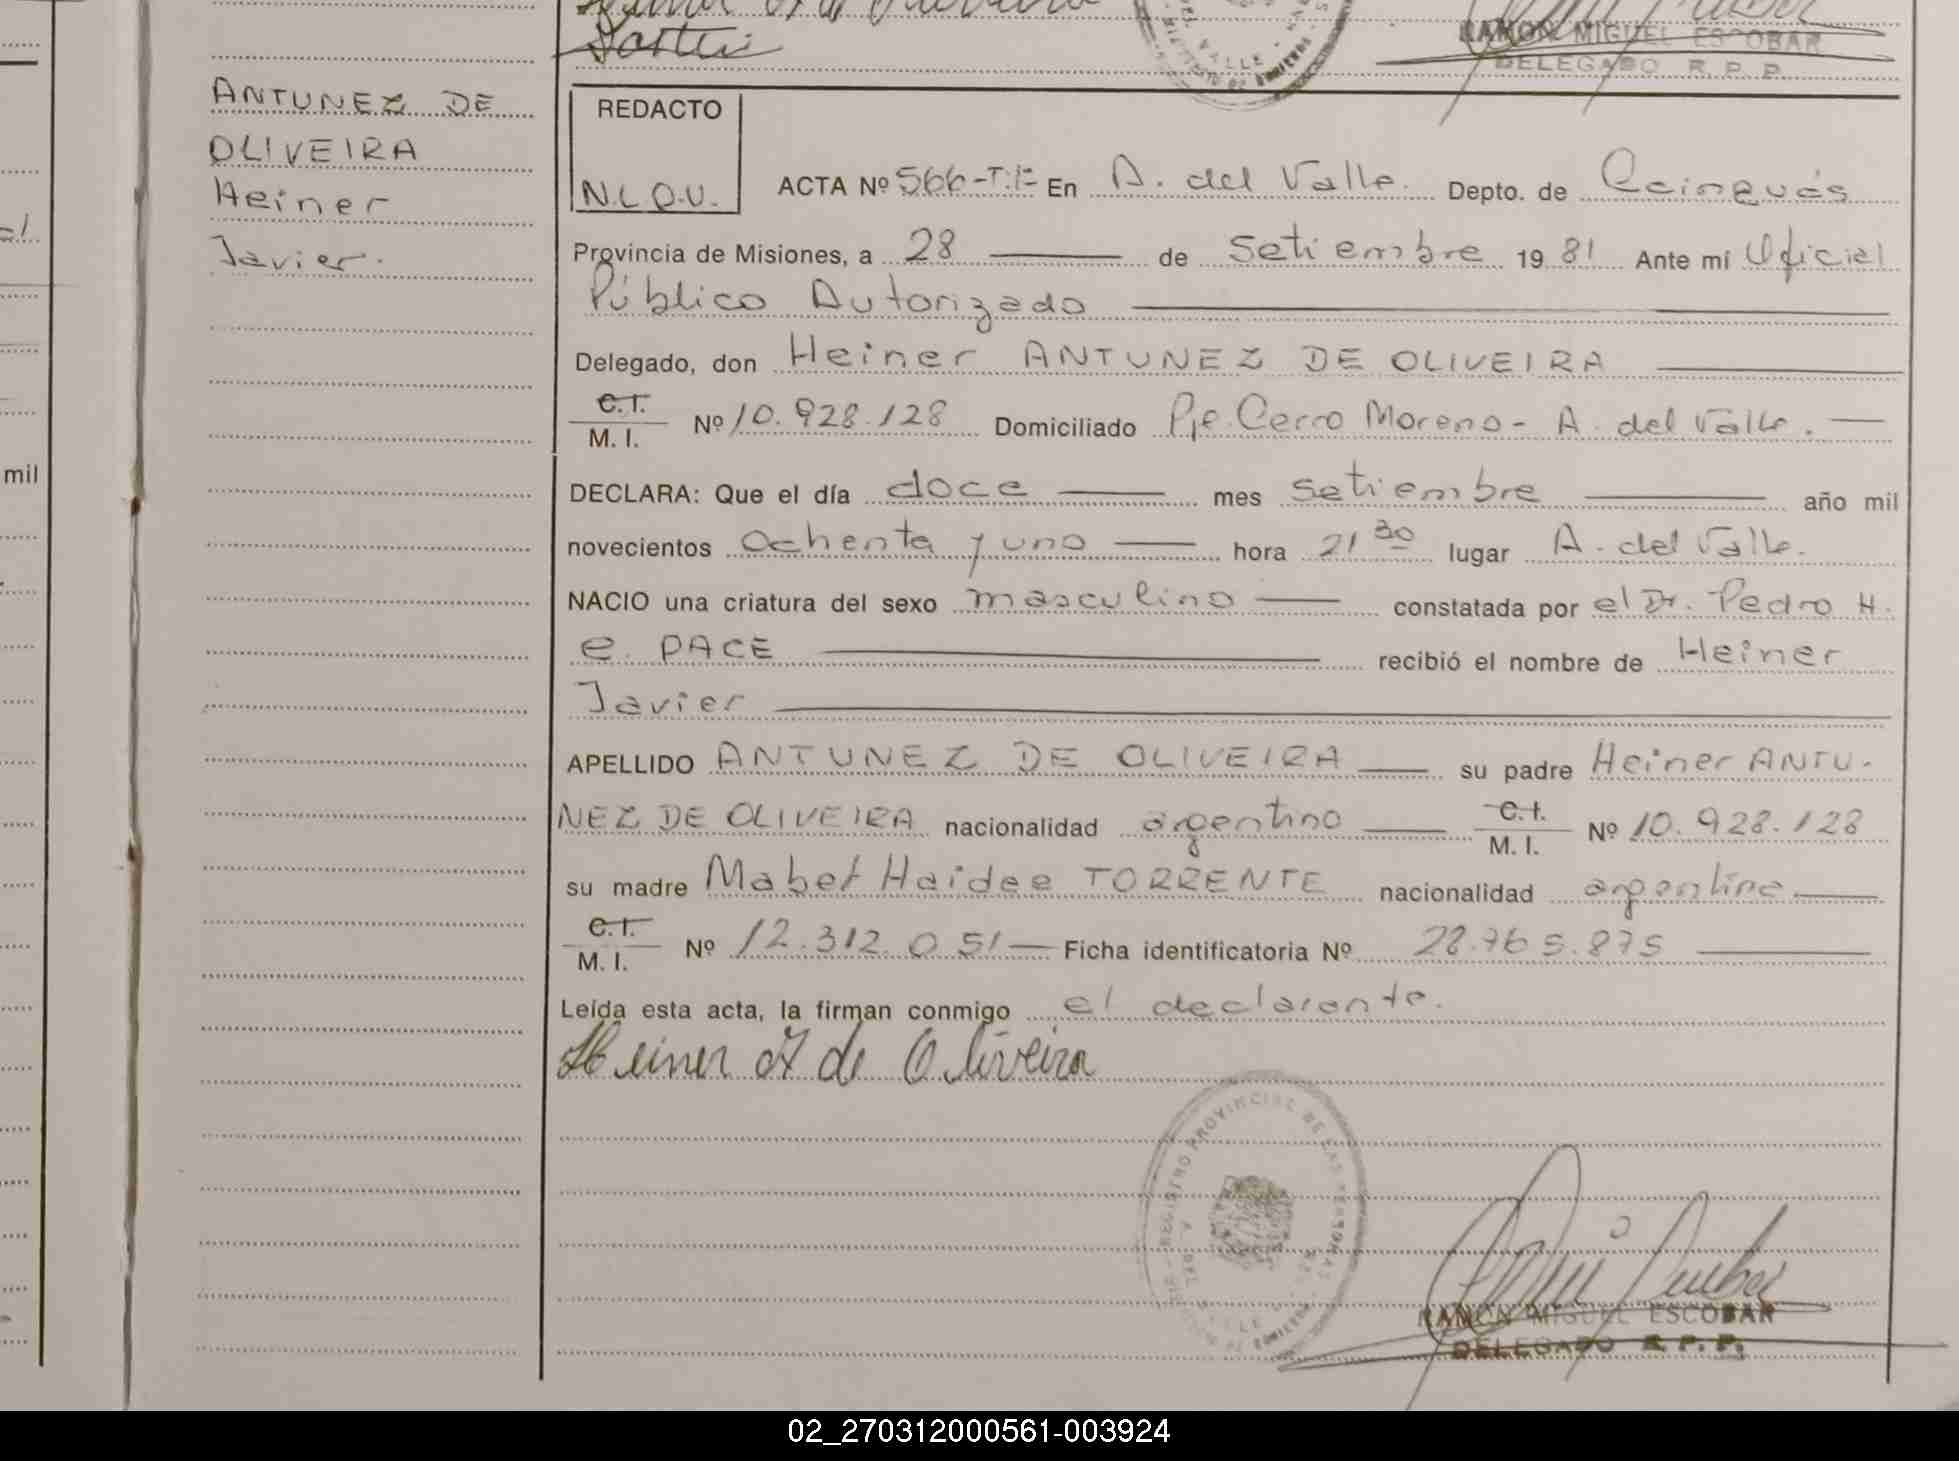 RAMON MIGUEL ESCOBAR
DELEGADO R. P. P.
ANTUNEZ DE
OLIVEIRA
Heiner
Javier.
mil
REDACTO
N.L.O.U.
ACTA Nº 566-T:1º En A. del Valle. Depto. de Cainguás
Provincia de Misiones, a 28 de setiembre 19 81 Ante mi Oficial
Público Autorizado
Delegado, don Heiner ANTUNEZ DE OLIVEIRA
C.I.
M. I. Nº 10.928.128 Domiciliado Pje. Cerro Moreno - A. del Valle.
DECLARA: Que el día doce mes setiembre año mil
novecientos ochenta y uno hora 21 30 lugar A. del Valle.
NACIO una criatura del sexo masculino constatada por el Dr. Pedro H.
e. PACE recibió el nombre de Heiner
Javier
APELLIDO ANTUNEZ DE OLIVEIRA su padre Heiner ANTU-
NEZ DE OLIVEIRA nacionalidad argentino C.I. M. I. Nº 10.928.128
su madre Mabel Haidee TORRENTE nacionalidad argentina
C.I.
M. I. Nº 12.312.051 Ficha identificatoria Nº 28.765.875
Leída esta acta, la firman conmigo el declarante.
Heiner A de Oliveira
REGISTRO PROVINCIAL DE LAS PERSONAS
RAMON MIGUEL ESCOBAR
DELEGADO R. P. P.
02_270312000561-003924